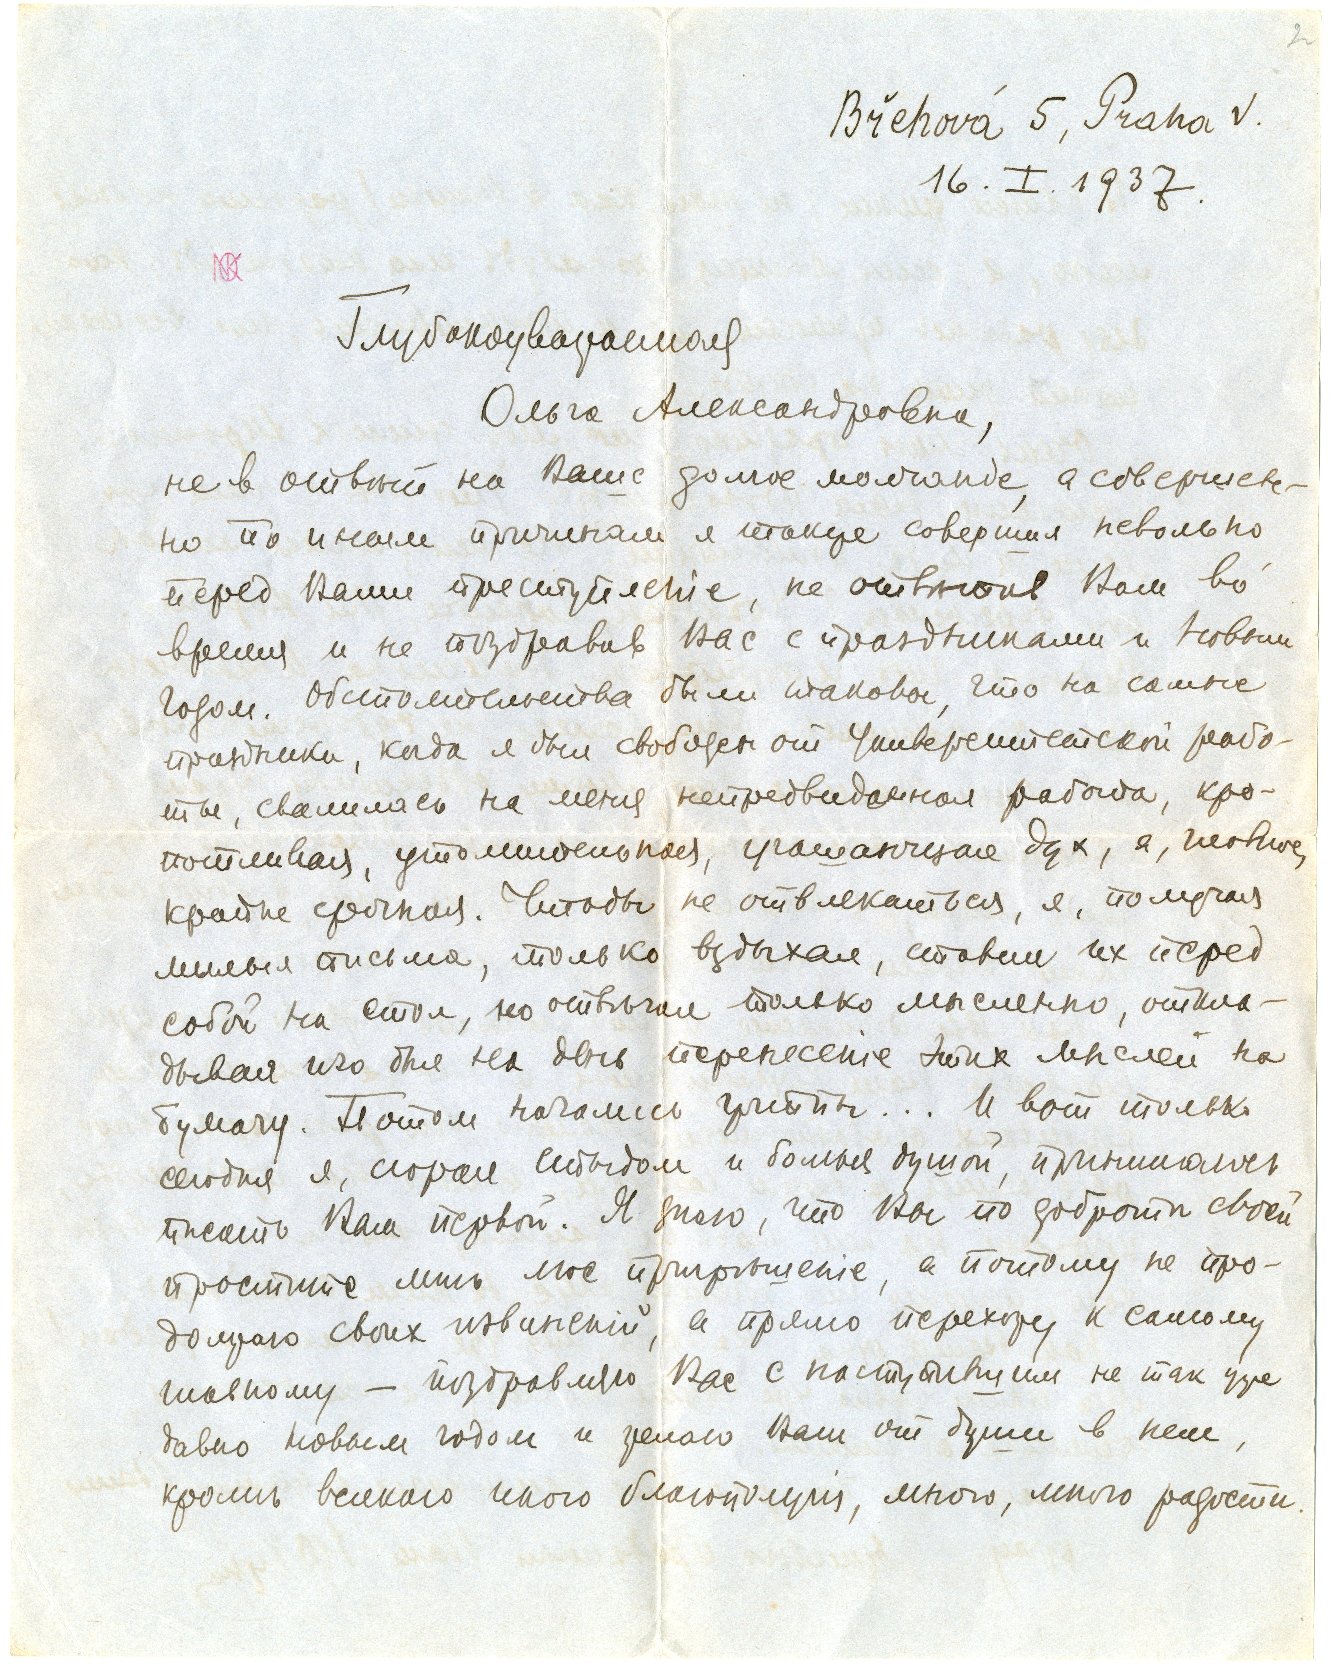 2
Břehová 5, Praha V.
16. I. 1937.
Глубокоуважаемая
Ольга Александровна,
не в отвѣт на Ваше долгое молчаніе, а совершен-
но по иным причинам я также совершил невольно
перед Вами преступленіе, не отвѣтив Вам во́
время и не поздравив Вас с праздниками и Новым
годом. Обстоятельства были таковы, что на самые
праздники, когда я был свободен от Университетской рабо-
ты, свалилась на меня непредвидѣнная работа, кро-
потливая, утомительная, угашающая дух, а, главное,
крайне срочная. Чтобы не отвлекаться, я, получая
милыя письма, только вздыхал, ставил их перед
собой на стол, но отвѣчал только мысленно, откла-
дывая изо дня на день перенесеніе этих мыслей на
бумагу. Потом начались гриппы... И вот только
сегодня я, сгорая стыдом и болѣя душой, принимаюсь
писать Вам первой. Я знаю, что Вы по добротѣ своей
простите мнѣ мое прегрѣшеніе, а потому не про-
должаю своих извиненій, а прямо перехожу к самому
главному — поздравляю Вас с наступившим не так уже
давно Новым годом и желаю Вам от души в нем,
кромѣ всякаго иного благополучія, много, много радости.